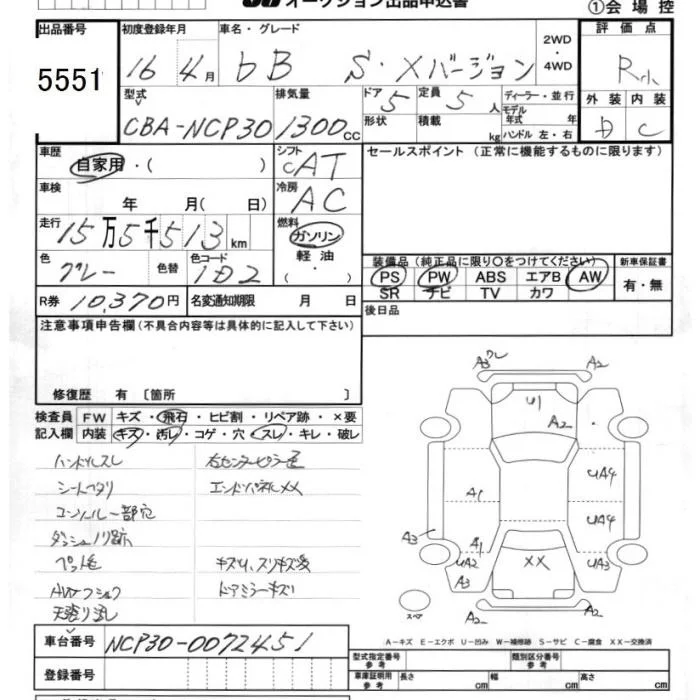 オークション出品申込書
①会場控
出品番号 初度登録年月 車名・グレード 評価点
5551 16 4月 bB S・Xバージョン 2WD・4WD R
型式 排気量 ドア 定員 ディーラー・並行 外装 内装
CBA-NCP30 1300cc 5 5人 モデル年式 年 D C
形状 積載 kg ハンドル 左・右
車歴 自家用・( ) シフト CAT セールスポイント(正常に機能するものに限ります)
車検 年 月( 日) 冷房 AC
走行 15万5千513km 燃料 ガソリン・軽油・( )
色 グレー 色替 色コード 1D2
装備品(純正品に限り〇をつけてください) 新車保証書
PS PW ABS エアB AW 有・無
SR ナビ TV カワ
R券 10,370円 名変通知期限 月 日 後日品
注意事項申告欄(不具合内容等は具体的に記入して下さい)
修復歴 有〔箇所 〕
検査員記入欄 FW キズ・飛石・ヒビ割・リペア跡・×要
内装 キズ・汚レ・コゲ・穴・スレ・キレ・破レ
ハンドルスレ 右センターピラー歪
シートヘタリ エンドパネルXX
コンソール一部穴
ダッシュノリ跡
ペット毛 キズ凹、スリキズ多
AWフショク ドアミラーキズ
天張り汚レ
A3ワレ A2
U1 A2
A1 UA4
UA4
A3 A1 UA2 XX UA3
A3
A2 A2
スペア
A-キズ E-エクボ U-凹み W-補修跡 S-サビ C-腐食 XX-交換済
車台番号 NCP30-0072451
型式指定番号 参考 類別区分番号 参考
登録番号 車庫証明用 参考 長さ cm 幅 cm 高さ cm